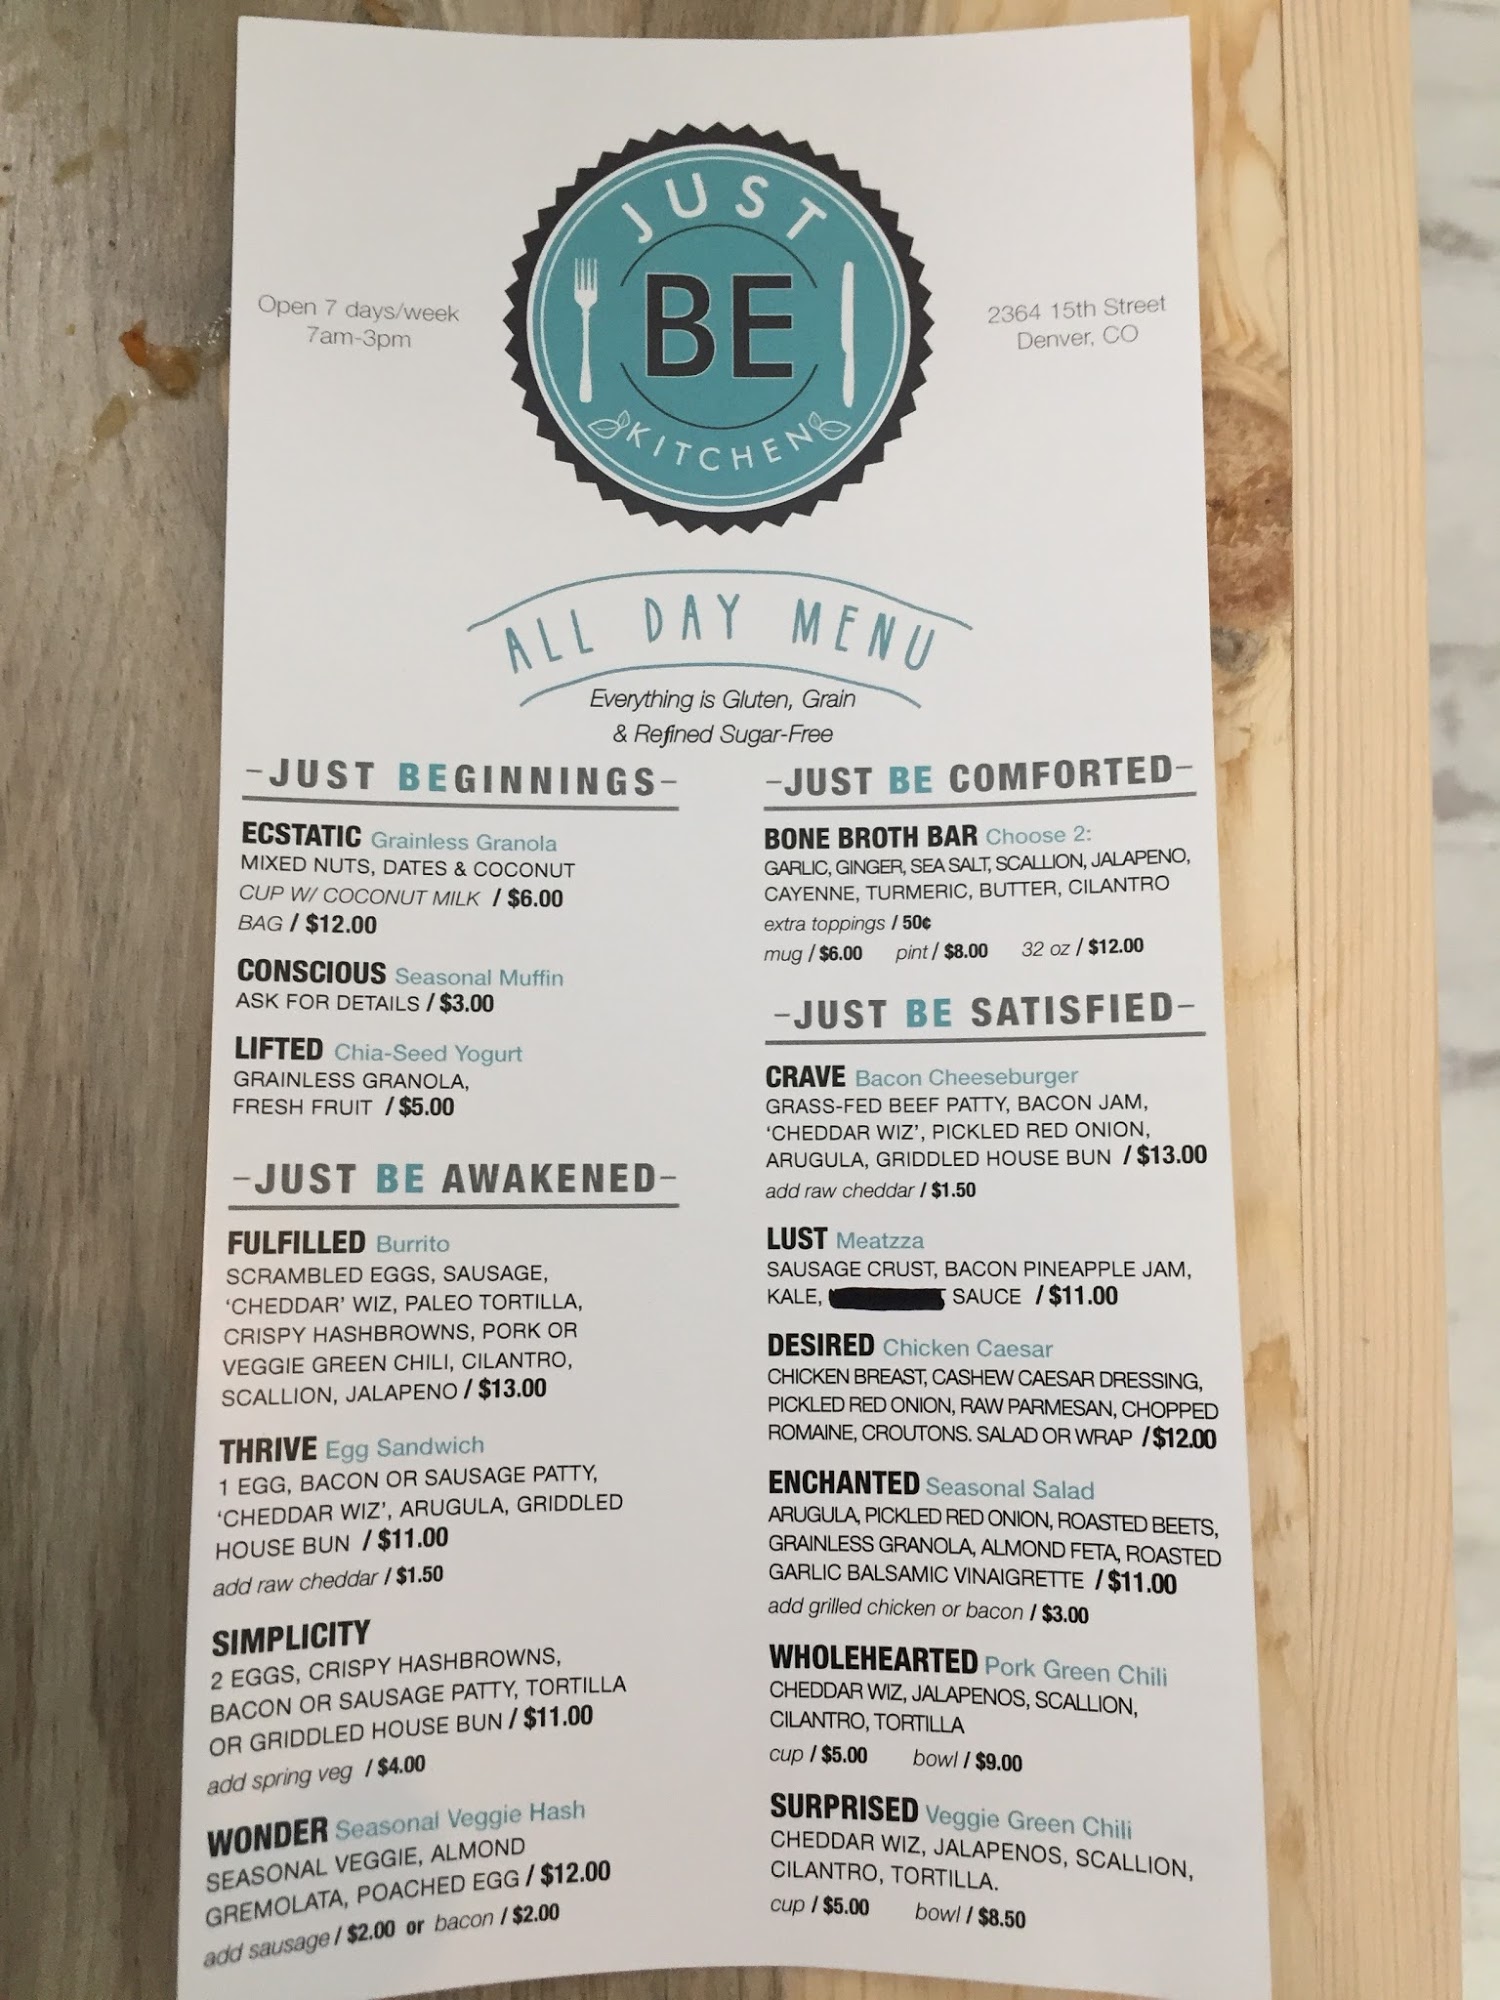 JUST
BE
KITCHEN
Open 7 days/week
7am-3pm
2364 15th Street
Denver, CO
ALL DAY MENU
Everything is Gluten, Grain
& Refined Sugar-Free
-JUST BEGINNINGS-
ECSTATIC Grainless Granola
MIXED NUTS, DATES & COCONUT
CUP W/ COCONUT MILK / $6.00
BAG / $12.00
CONSCIOUS Seasonal Muffin
ASK FOR DETAILS / $3.00
LIFTED Chia-Seed Yogurt
GRAINLESS GRANOLA,
FRESH FRUIT / $5.00
-JUST BE AWAKENED-
FULFILLED Burrito
SCRAMBLED EGGS, SAUSAGE,
'CHEDDAR' WIZ, PALEO TORTILLA,
CRISPY HASHBROWNS, PORK OR
VEGGIE GREEN CHILI, CILANTRO,
SCALLION, JALAPENO / $13.00
THRIVE Egg Sandwich
1 EGG, BACON OR SAUSAGE PATTY,
'CHEDDAR WIZ', ARUGULA, GRIDDLED
HOUSE BUN / $11.00
add raw cheddar / $1.50
SIMPLICITY
2 EGGS, CRISPY HASHBROWNS,
BACON OR SAUSAGE PATTY, TORTILLA
OR GRIDDLED HOUSE BUN / $11.00
add spring veg / $4.00
WONDER Seasonal Veggie Hash
SEASONAL VEGGIE, ALMOND
GREMOLATA, POACHED EGG / $12.00
add sausage / $2.00 or bacon / $2.00
-JUST BE COMFORTED-
BONE BROTH BAR Choose 2:
GARLIC, GINGER, SEA SALT, SCALLION, JALAPENO,
CAYENNE, TURMERIC, BUTTER, CILANTRO
extra toppings / 50¢
mug / $6.00 pint / $8.00 32 oz / $12.00
-JUST BE SATISFIED-
CRAVE Bacon Cheeseburger
GRASS-FED BEEF PATTY, BACON JAM,
'CHEDDAR WIZ', PICKLED RED ONION,
ARUGULA, GRIDDLED HOUSE BUN / $13.00
add raw cheddar / $1.50
LUST Meatzza
SAUSAGE CRUST, BACON PINEAPPLE JAM,
KALE, SAUCE / $11.00
DESIRED Chicken Caesar
CHICKEN BREAST, CASHEW CAESAR DRESSING,
PICKLED RED ONION, RAW PARMESAN, CHOPPED
ROMAINE, CROUTONS. SALAD OR WRAP / $12.00
ENCHANTED Seasonal Salad
ARUGULA, PICKLED RED ONION, ROASTED BEETS,
GRAINLESS GRANOLA, ALMOND FETA, ROASTED
GARLIC BALSAMIC VINAIGRETTE / $11.00
add grilled chicken or bacon / $3.00
WHOLEHEARTED Pork Green Chili
CHEDDAR WIZ, JALAPENOS, SCALLION,
CILANTRO, TORTILLA
cup / $5.00 bowl / $9.00
SURPRISED Veggie Green Chili
CHEDDAR WIZ, JALAPENOS, SCALLION,
CILANTRO, TORTILLA.
cup / $5.00 bowl / $8.50